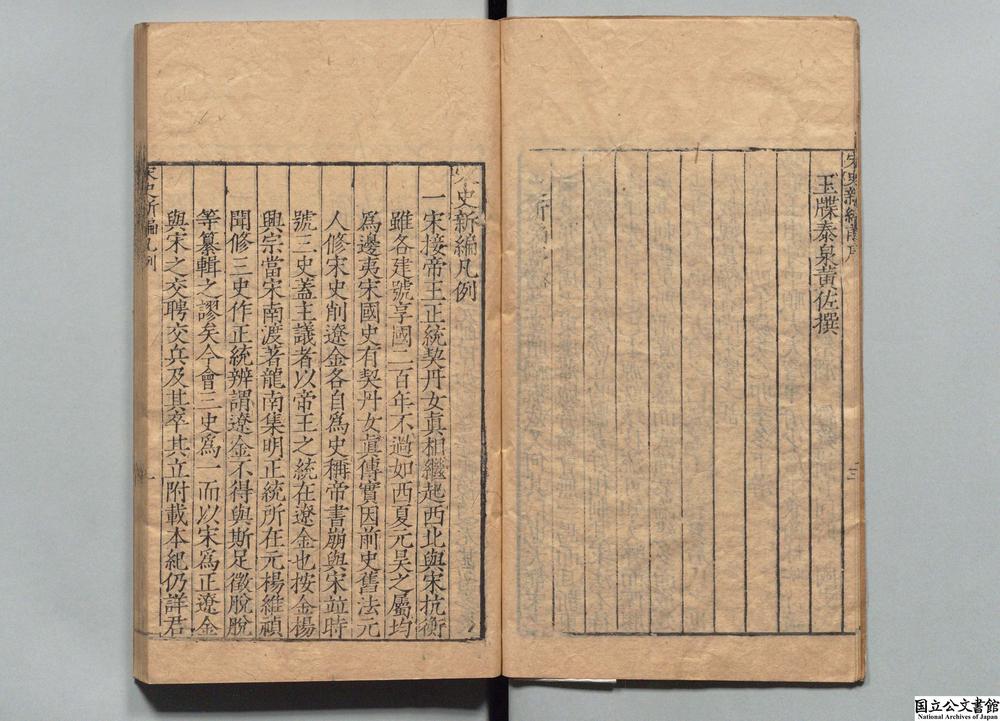 玉牒泰泉黃佐撰
宋史新編凡例
一宋接帝王正統契丹女真相繼起西北與宋抗衡
雖各建號享國二百年不過如西夏元昊之屬均
為邊夷宋國史有契丹女真傳實因前史舊法元
人修宋史削遼金各自為史稱帝書崩與宋竝時
號三史蓋主議者以帝王之統在遼金也按金楊
興宗當宋南渡著龍南集明正統所在元楊維禎
聞修三史作正統辨謂遼金不得與斯足徵脫脫
等纂輯之謬矣今會三史為一而以宋為正遼金
與宋之交聘交兵及其卒其立附載本紀仍詳君
宋史新編凡例
一
国立公文書館
National Archives of Japan